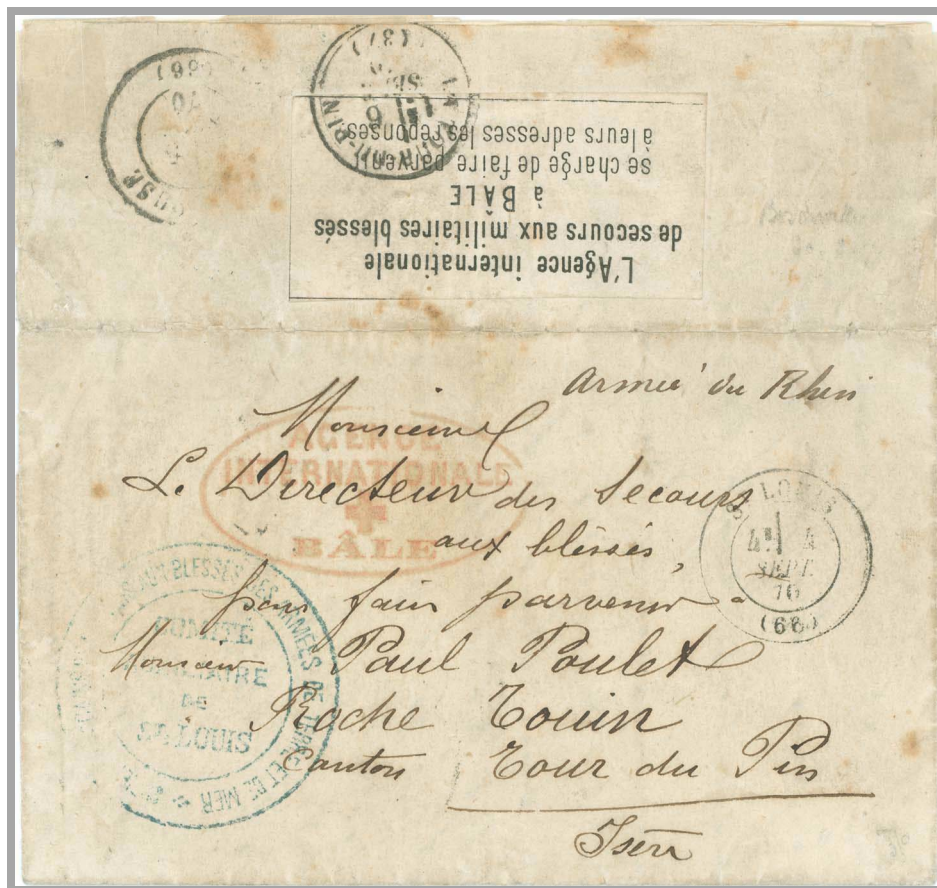 (66)
70
(37)
LA TOUR-DU-PIN
6
L'Agence internationale
de secours aux militaires blessés
à BÂLE
se charge de faire parvenir
à leurs adresses les réponses
Armée du Rhin
Monsieur
Le Directeur des Secours
aux blessés,
pour faire parvenir à
Monsieur Paul Poulet
Roche Touin
Canton Tour du Pin
Isère
AGENCE
INTERNATIONALE
BÂLE
ST LOUIS
4E 4
SEPT.
70
(66)
AUX BLESSÉS DES ARMÉES DE TERRE ET DE MER
COMITÉ
DE
ST LOUIS